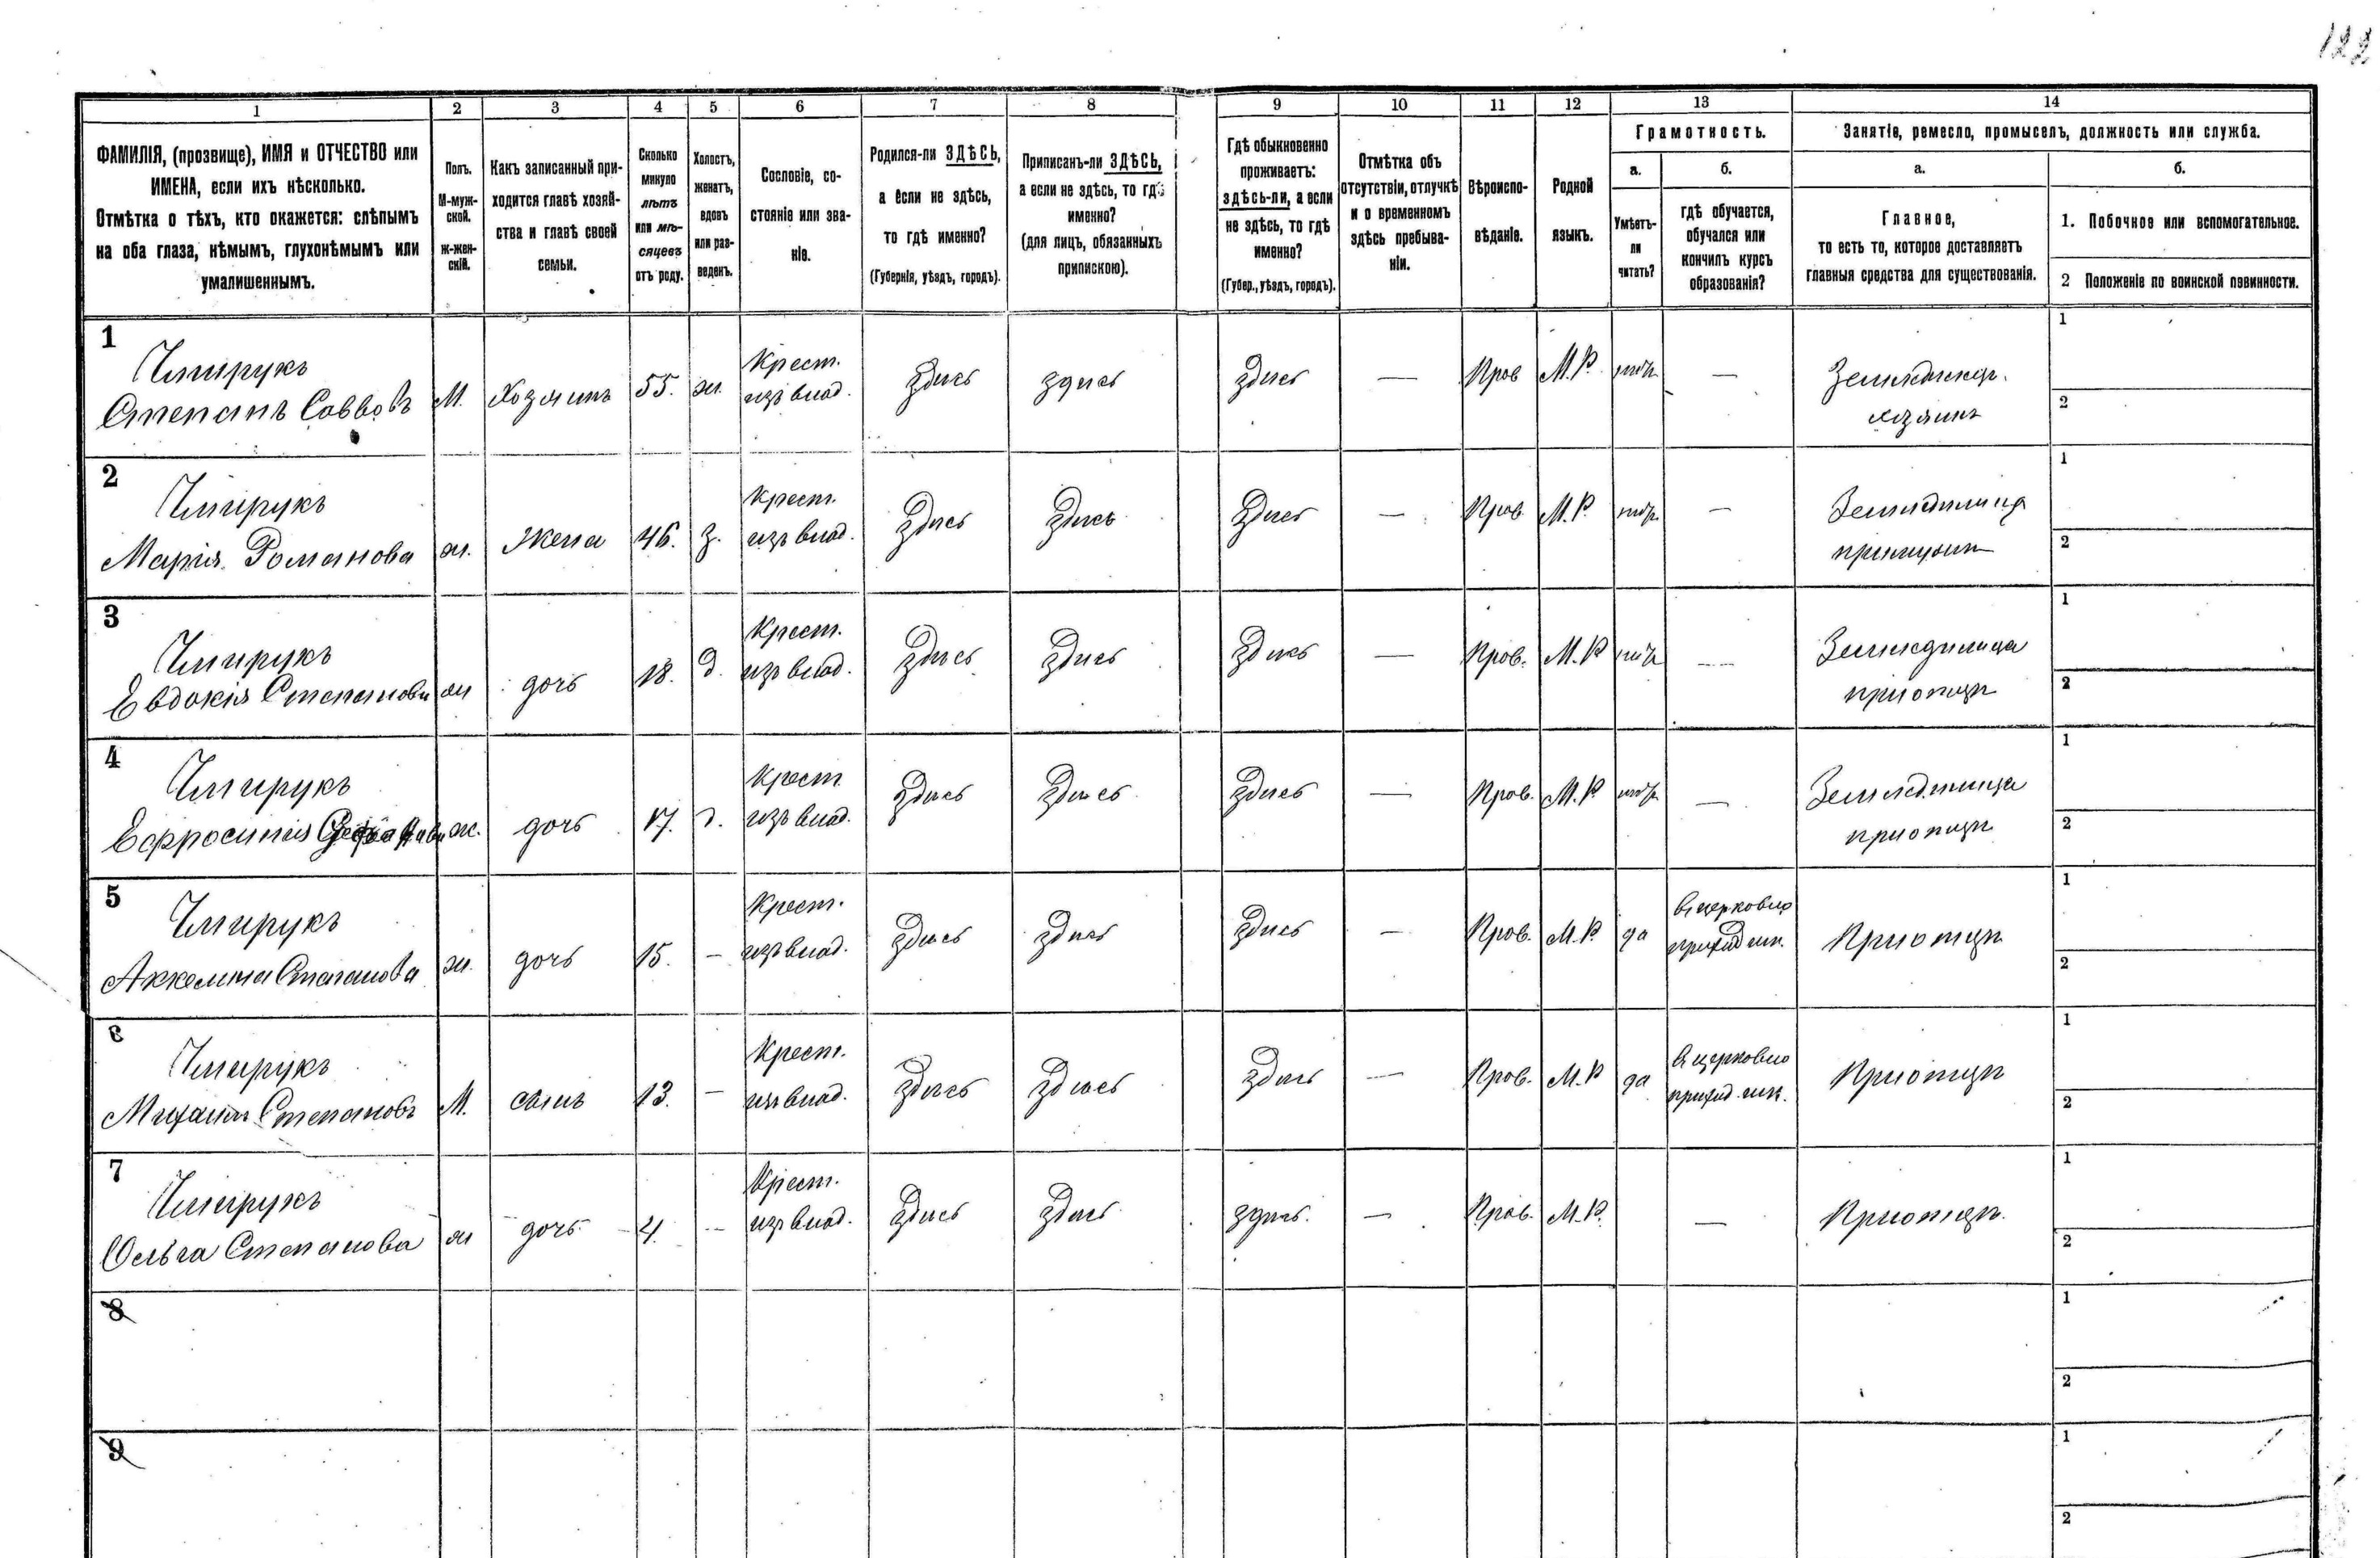 122
1 2 3 4 5 6 7 8 9 10 11 12 13 14
ФАМИЛІЯ, (прозвище), ИМЯ и ОТЧЕСТВО или
ИМЕНА, если ихъ нѣсколько.
Отмѣтка о тѣхъ, кто окажется: слѣпымъ
на оба глаза, нѣмымъ, глухонѣмымъ или
умалишеннымъ.
Полъ.
М-муж-
ской.
ж-жен-
скій.
Какъ записанный при-
ходится главѣ хозяй-
ства и главѣ своей
семьи.
Сколько
минуло
лѣтъ
или мѣ-
сяцевъ
отъ роду.
Холостъ,
женатъ,
вдовъ
или раз-
веденъ.
Сословіе, со-
стояніе или зва-
ніе.
Родился-ли ЗДѢСЬ,
а если не здѣсь,
то гдѣ именно?
(Губернія, уѣздъ, городъ).
Приписанъ-ли ЗДѢСЬ,
а если не здѣсь, то гдѣ
именно?
(для лицъ, обязанныхъ
припискою).
Гдѣ обыкновенно
проживаетъ:
здѣсь-ли, а если
не здѣсь, то гдѣ
именно?
(Губер., уѣздъ, городъ).
Отмѣтка объ
отсутствіи, отлучкѣ
и о временномъ
здѣсь пребыва-
ніи.
Вѣроиспо-
вѣданіе.
Родной
языкъ.
Грамотность.
а.
Умѣетъ-
ли
читать?
б.
гдѣ обучается,
обучался или
кончилъ курсъ
образованія?
Занятіе, ремесло, промыселъ, должность или служба.
а.
Главное,
то есть то, которое доставляетъ
главныя средства для существованія.
б.
1. Побочное или вспомогательное.
2 Положеніе по воинской повинности.
1
Степанъ Саввовъ
М. Хозяинъ 55. ж.
Крест.
изъ влад.
здѣсь здѣсь здѣсь — Прав М.Р. —
хозяинъ
1
2
2
Марія Романова
ж. Жена 46. з.
Крест.
изъ влад.
здѣсь здѣсь здѣсь — Прав. М.Р. —
1
2
3
Евдокія Степанова
ж дочь 18. д.
Крест.
изъ влад.
здѣсь здѣсь здѣсь — Прав. М.Р —
при отцѣ
1
2
4
Ефросинія
ж. дочь 17. д.
Крест
изъ влад.
здѣсь здѣсь здѣсь — Прав. М.Р —
при отцѣ
1
2
5
Степанова
ж. дочь 15. —
Крест.
изъ влад.
здѣсь здѣсь здѣсь — Прав. М.Р. да
въ церковно
приход шк.
При отцѣ
1
2
6
Михаилъ Степановъ
М. сынъ 13. —
Крест.
изъ влад.
здѣсь здѣсь здѣсь — Прав. М.Р да
въ церковно
приход. шк.
При отцѣ
1
2
7
Ольга Степанова
ж дочь 4. —
Крест.
изъ влад.
здѣсь здѣсь здѣсь. — Прав. М.Р. —
При отцѣ.
1
2
8
1
2
9
1
2